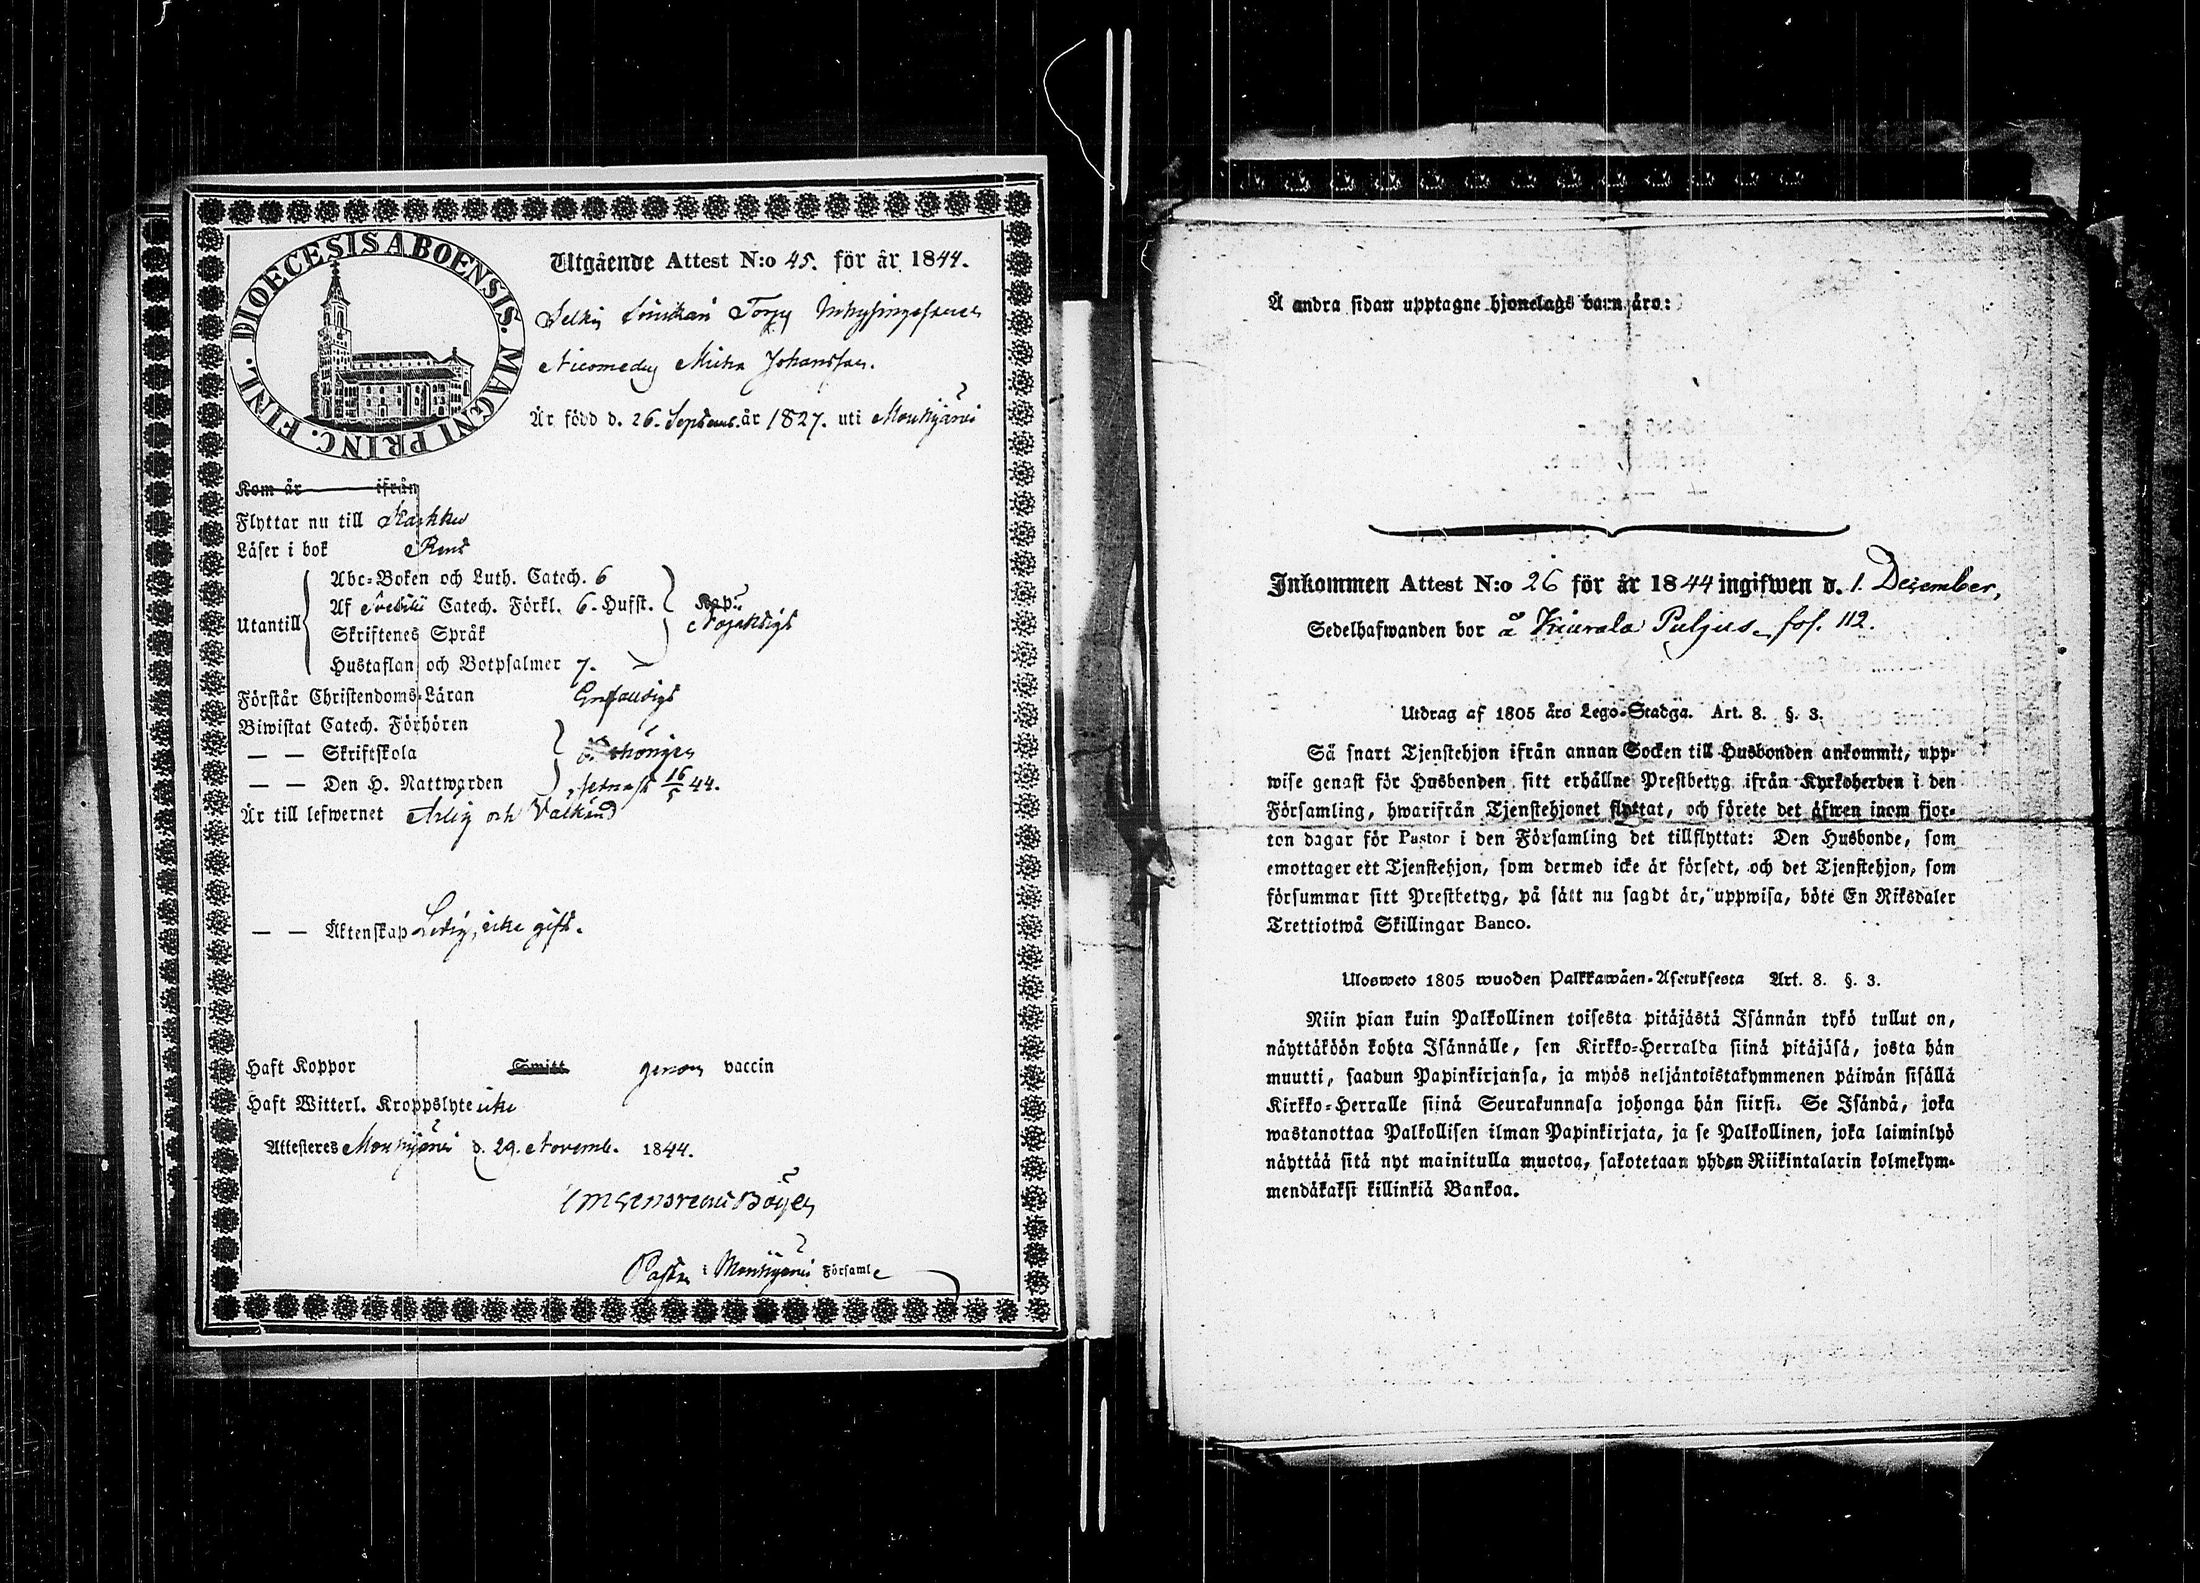 DIOECESIS ABOENSIS. MAGNI PRINC. FINL.
Utgående Attest N:o 45. för år 1844.
Torp Inhysingessonen
Nicomedes Micha Johansson.
Är född d. 26. Septemb. år 1827. uti Mouhijärvi
Kom år ifrån
Flyttar nu till Karkku
Läser i bok Rent
Utantill
Abc-Boken och Luth. Catech. 6
Af Svebilii Catech. Förkl. 6. Hufst.
Skriftenes Språk
Hustaflan och Botpsalmer 7.
Nöjaktigt
Förstår Christendoms-Läran Enfaldigt
Biwistat Catech. Förhören
— — Skriftskola
— — Den H. Nattwarden senast 16/5 44.
Är till lefwernet Ärlig och Välkänd
— — Äktenskap Ledig, icke gift.
Haft Koppor Smitt genom vaccin
Haft Witterl. Kroppslyte icke
Attesteras Mouhijärvi d. 29. Novemb. 1844.
Pastor i Mouhijärvi Församl
Å andra sidan upptagne hjonelags barn äro:
Inkommen Attest N:o 26 för år 1844 ingifwen d. 1. December,
Sedelhafwanden bor å Kiurala Puljus fol. 112.
Utdrag af 1805 års Lego-Stadga. Art. 8. §. 3.
Så snart Tjenstehjon ifrån annan Socken till Husbonden ankommit, upp-
wise genast för Husbonden sitt erhållne Prestbetyg ifrån Kyrkoherden i den
Församling, hwarifrån Tjenstehjonet flyttat, och förete det äfwen inom fjor-
ton dagar för Pastor i den Församling det tillflyttat: Den Husbonde, som
emottager ett Tjenstehjon, som dermed icke är försedt, och det Tjenstehjon, som
försummar sitt Prestbetyg, på sätt nu sagdt är, uppwisa, böte En Riksdaler
Trettiotwå Skillingar Banco.
Ulosweto 1805 wuoden Palkkawäen-Asetuksesta Art. 8. §. 3.
Niin pian kuin Palkollinen toisesta pitäjästä Isännän tykö tullut on,
näyttäköön kohta Isännälle, sen Kirkko-Herralda siinä pitäjäsä, josta hän
muutti, saadun Papinkirjansa, ja myös neljäntoistakymmenen päiwän sisällä
Kirkko-Herralle siinä Seurakunnasa johonga hän siirsi. Se Isändä, joka
wastanottaa Palkollisen ilman Papinkirjata, ja se Palkollinen, joka laiminlyö
näyttää sitä nyt mainitulla muotoa, sakotetaan yhden Riikintalarin kolmekym-
mendäkaksi killinkiä Bankoa.